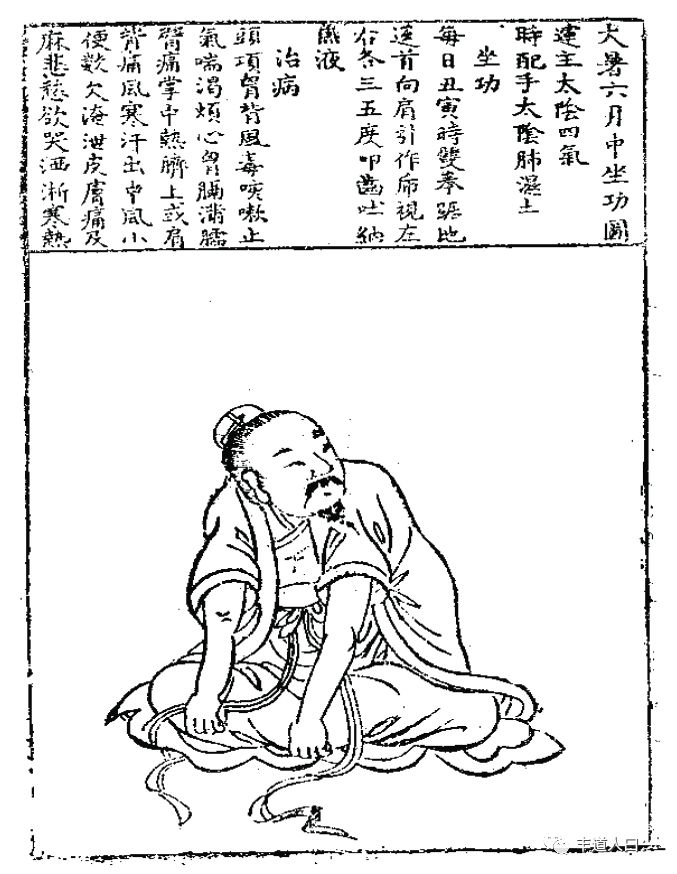 大暑六月中坐功圖
運主太陰四氣
時配手太陰肺濕土
坐功
每日丑寅時雙拳踞地
返首向肩引作虎視左
右各三五度叩齒吐納
嚥液
治病
頭項胷背風毒咳嗽上
氣喘渴煩心胷膈滿臑
臂痛掌中熱臍上或肩
背痛風寒汗出中風小
便數欠淹泄皮膚痛及
麻悲愁欲哭洒淅寒熱
丰道人日